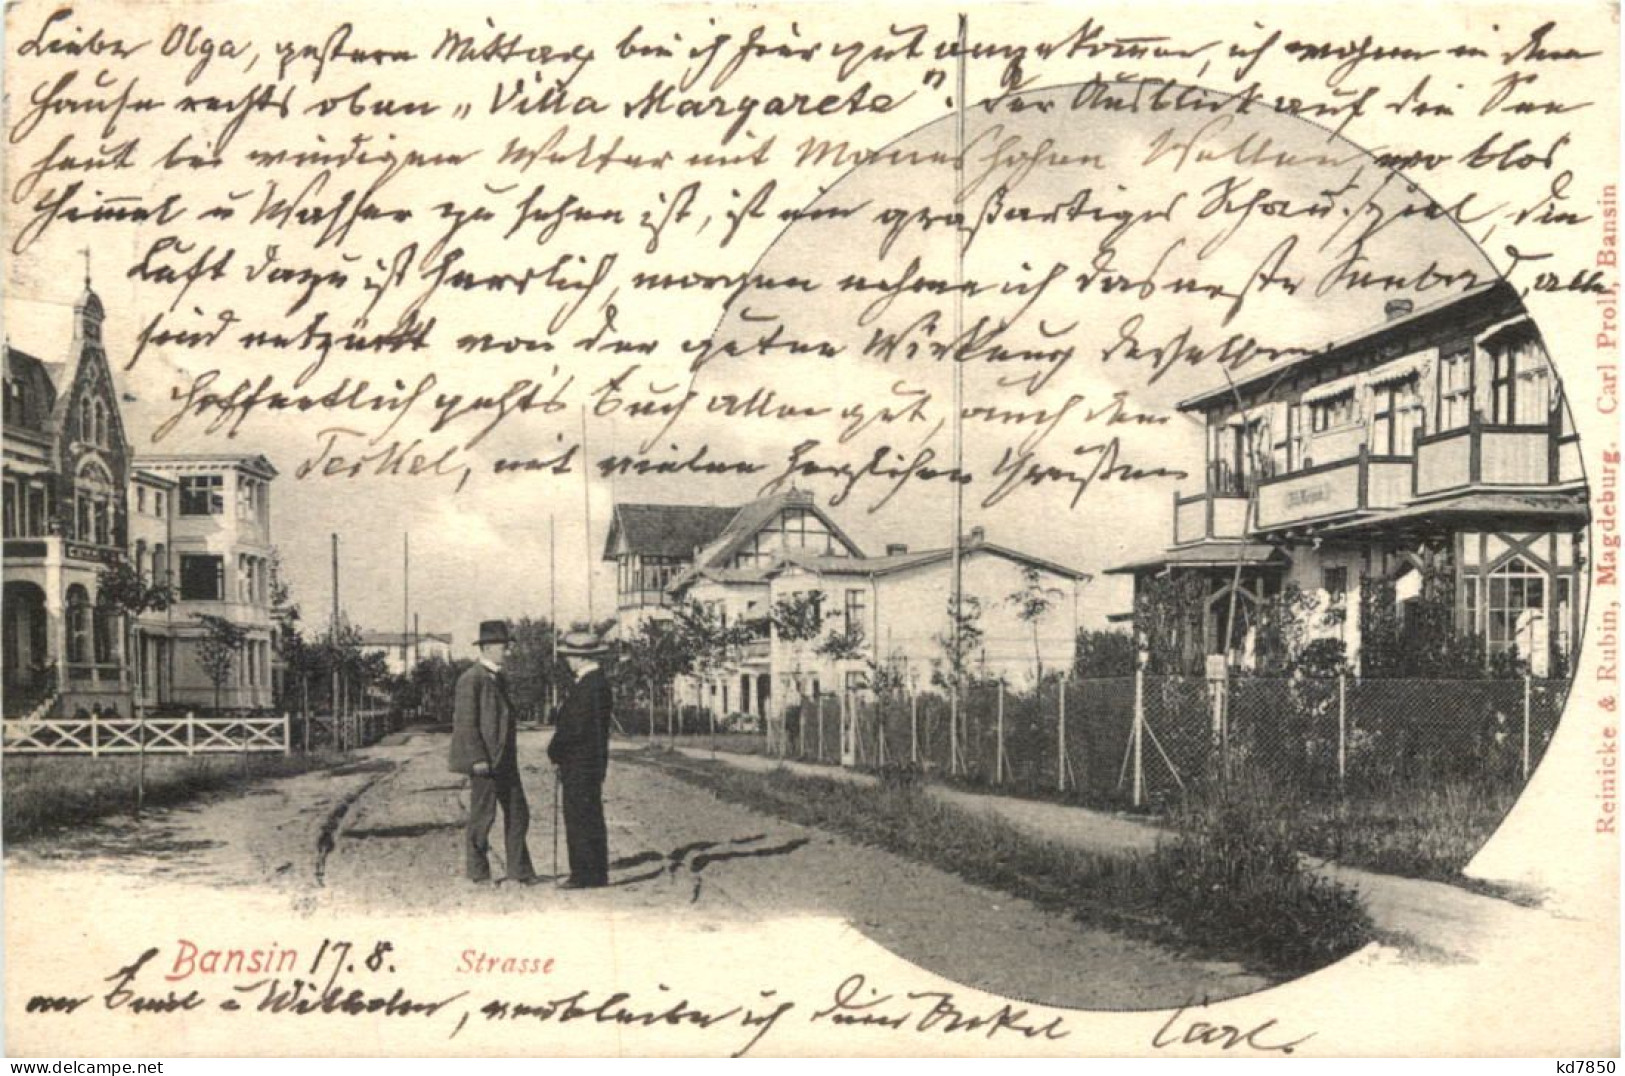 Liebe Olga, gestern Mittag bin ich hier gut angekommen, ich wohne in dem
Hause rechts oben „Villa Margarete". Der Ausblick auf die See
heut bei windigem Wetter mit Manneshohen Wellen, wo blos
Himmel u Wasser zu sehen ist, ist ein großartiges Schauspiel, die
Luft dazu ist herrlich, morgen nehme ich das erste Seebad, alle
sind entzückt von der guten Wirkung desselben
hoffentlich geht's Euch allen gut, auch dem
Teckel, mit vielen herzlichen Grüssen
Bansin 17.8. Strasse
an Emil u Wilhelm, verbleibe ich Dein Onkel Carl.
Reinicke & Rubin, Magdeburg. Carl Proll, Bansin
kd7850